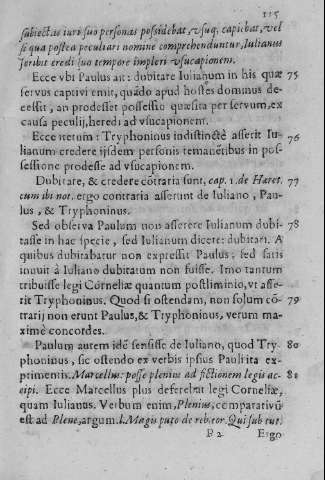 115
subiectas iuri suo personas possidebat, & vsuq; capiebat, vel
si qua postea peculiari nomine comprehenduntur, Iulianus
scribit credi suo tempore impleri vsucapionem.
Ecce vbi Paulus ait: dubitare Iulianum in his quæ 75
servus captivi emit, quãdo apud hostes dominus de-
cessit, an prodesset possessio quæsita per servum, ex
causa peculij, heredi ad vsucapionem.
Ecce iterum: Tryphoninus indistinctè asserit Iu- 76
lianum credere ijsdem personis temanẽtibus in pos-
sessione prodesse ad vsucapionem.
Dubitare, & credere cõtraria sunt, cap. 1. de Hæret. 77
cum ibi not. ergo contraria asserunt de Iuliano, Pau-
lus, & Tryphoninus.
Sed observa Paulum non asserere Iulianum dubi- 78
tasse in hac specie, sed Iulianum dicere: dubitari. A
quibus dubitabatur non expressit Paulus; sed satis
innuit à Iuliano dubitatum non fuisse. Imo tantum
tribuisse legi Corneliæ quantum postliminio, vt asse-
rit Tryphoninus. Quod si ostendam, non solum cõ- 79
trarij non erunt Paulus, & Tryphoninus, verum ma-
ximè concordes.
Paulum autem idẽ sensisse de Iuliano, quod Try- 80
phoninus, sic ostendo ex verbis ipsius Pauli ita ex-
primentis. Marcellus: posse plenius ad fictionem legis ac- 81
cipi. Ecce Marcellus plus deferebat legi Corneliæ,
quam Iulianus. Verbum enim, Plenius, comparativũ
est ad Plene, argum. l. Magis puto de reb. eor. Qui sub tut.
P 2 Ergo